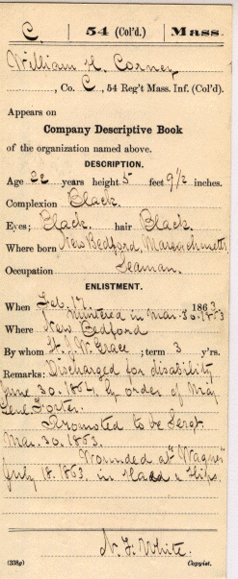 C. | 54 (Col'd.) | Mass.
William H. Carney
, Co. C, 54 Reg't Mass. Inf. (Col'd).
Appears on
Company Descriptive Book
of the organization named above.
DESCRIPTION.
Age 22 years height 5 feet 9 1/2 inches.
Complexion Black.
Eyes; Black. hair Black.
Where born New Bedford, Massachusetts
Occupation Seaman.
ENLISTMENT.
When Feb. 17. 1863.
Mustered in Mar. 30. 1863
Where New Bedford
By whom H. J. W. Grace; term 3 y'rs.
Remarks: Discharged for disability
June 30. 1864. by order of Maj.
Genl. Foster.
Promoted to be Sergt.
Mar. 30. 1863.
Wounded at Wagner
July 18. 1863. in Head & Hips.
N. G. White.
(338g) Copyist.